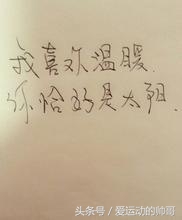 我喜欢温暖.
你恰好是太阳.
头条号/爱运动的帅哥